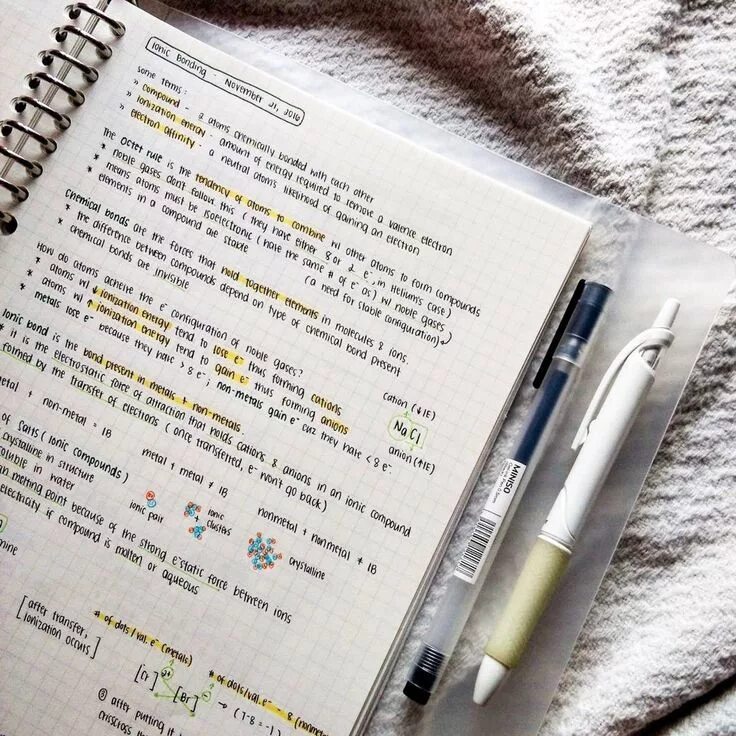 Ionic Bonding - November 21, 2016
Some terms:
» compound - 2 atoms chemically bonded with each other
» ionization energy - amount of energy required to remove a valence electron
» electron affinity - a neutral atom's likelihood of gaining an electron
The Octet rule is the tendency of atoms to combine w/ other atoms to form compounds
* noble gases don't follow this (they have either 8 or 2 e⁻, in Helium's case)
* means atoms must be isoelectronic (have the same # of e⁻ as) w/ noble gases
elements in a compound are stable (a need for stable configuration)
Chemical bonds are the forces that hold together elements in molecules & ions.
* the difference between compounds depend on type of chemical bond present
* chemical bonds are invisible
How do atoms achieve the e⁻ configuration of noble gases?
* atoms w/ ↓ ionization energy tend to lose e⁻ thus forming cations
* atoms w/ ↑ ionization energy tend to gain e⁻ thus forming anions
* metals lose e⁻ because they have > 8 e⁻; non-metals gain e⁻ cuz they have < 8 e⁻
cation (↓IE)
NaCl
anion (↑IE)
Ionic bond is the bond present in metals + non-metals.
* it is the electrostatic force of attraction that holds cations & anions in an ionic compound
formed by the transfer of electrons (once transferred, e⁻ won't go back)
metal + non-metal = IB
metal + metal ≠ IB
nonmetal + nonmetal ≠ IB
of Salts (Ionic Compounds)
crystalline in structure
soluble in water
melting point because of the strong e⁻static force between ions
electricity if compound is molten or aqueous
ionic pair
ionic clusters
crystalline
[after transfer, ionization occurs]
# of dots/val. e⁻ (metals)
# of dots/val. e⁻ - 8 (nonmetals
→ (7-8 = -1)
[Br]
③ after putting it
crisscross th
MINISO